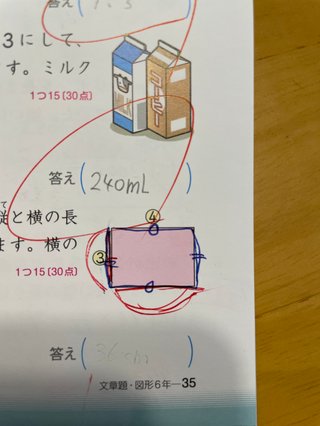 答え
3にして、
す。ミルク
MILK
コーヒー
1つ15〔30点〕
答え(240mL)
て
縦と横の長
ます。横の
④
③
1つ15〔30点〕
答え(36cm)
文章題・図形6年—35